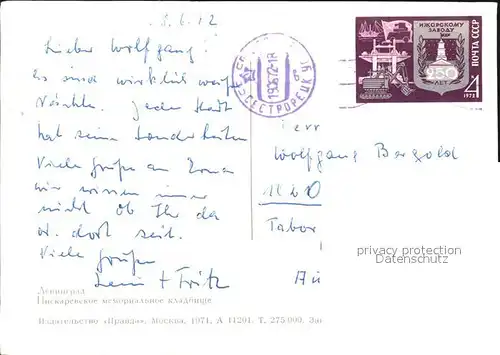 8.6.72
Lieber Wolfgang!
Es sind wirklich weiße
Nächte. Jede Stadt
hat seine Sonderheiten
Viele Grüße an
wir wissen immer
nicht ob Ihr da
o. dort seid.
Viele Grüße
Leni + Fritz
Ленинград
Пискаревское мемориальное кладбище
Издательство «Правда». Москва, 1971. А 11201. Т. 275 000. Зак
СЕСТРОРЕЦК
19.06.72-18
ИЖОРСКОМУ
ЗАВОДУ
250
ЛЕТ
ПОЧТА СССР
1972
4
Herr
Wolfgang Bergold
1020
Tabor
Au
privacy protection
watermark